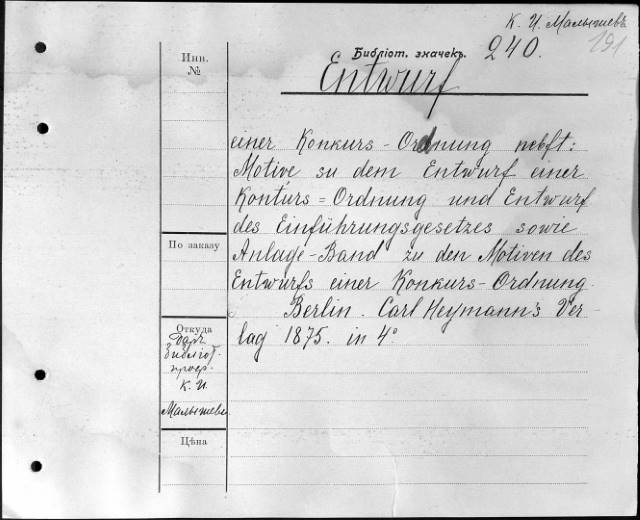 К. И. Малышевъ
191
Библіот. значекъ.
240.
Инв.
№
Entwurf
einer Konkurs-Ordnung nebst:
Motive zu dem Entwurf einer
Konkurs=Ordnung und Entwurf
des Einführungsgesetzes sowie
Anlage-Band zu den Motiven des
Entwurfs einer Konkurs-Ordnung.
Berlin. Carl Heymann's Ver-
lag 1875. in 4°
По заказу
Откуда
Даръ
К. И.
Малышева
Цѣна